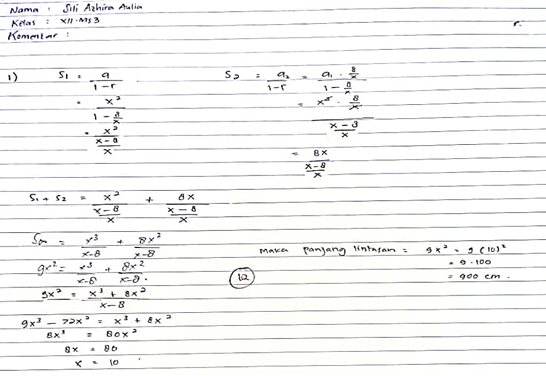 Nama : Siti Azhira Aulia
Kelas : XII.MS3
Komentar :
r.
1) S₁ = a / (1-r)
= x² / (1 - 8/x)
= x² / ((x-8)/x)
S₂ = a₂ / (1-r) = (a₁ · 8/x) / (1 - 8/x)
= (x² · 8/x) / ((x-8)/x)
= 8x / ((x-8)/x)
S₁ + S₂ = x² / ((x-8)/x) + 8x / ((x-8)/x)
S∞ = x³/(x-8) + 8x²/(x-8)
9x² = x³/(x-8) + 8x²/(x-8).
9x² = (x³ + 8x²)/(x-8)
9x³ - 72x² = x³ + 8x²
8x³ = 80x²
8x = 80
x = 10
12
Maka panjang lintasan = 9x² = 9(10)²
= 9·100
= 900 cm.